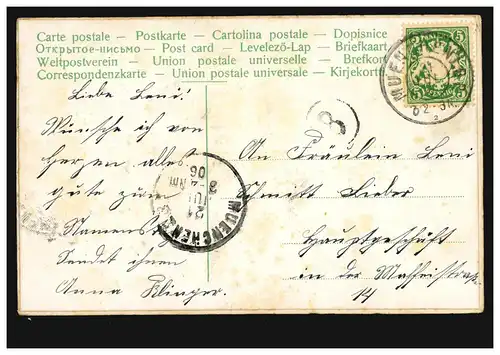 Carte postale – Postkarte – Cartolina postale – Dopisnice
Открытое-письмо – Post card – Levelező-Lap – Briefkaart
Weltpostverein – Union postale universelle – Brefkort
Correspondenzkarte – Union postale universale – Kirjekortti
5
5
MUENCHEN
8
Liebe Leni!
Wünsche ich von
Herzen alles
gute zum
Namenstag
Sendet ihnen
Anna Klinger.
MUENCHEN
21
JUL
06
An Fräulein Leni
Schmitt Lieber
Hauptgeschäft
in der Maffeistraße
14